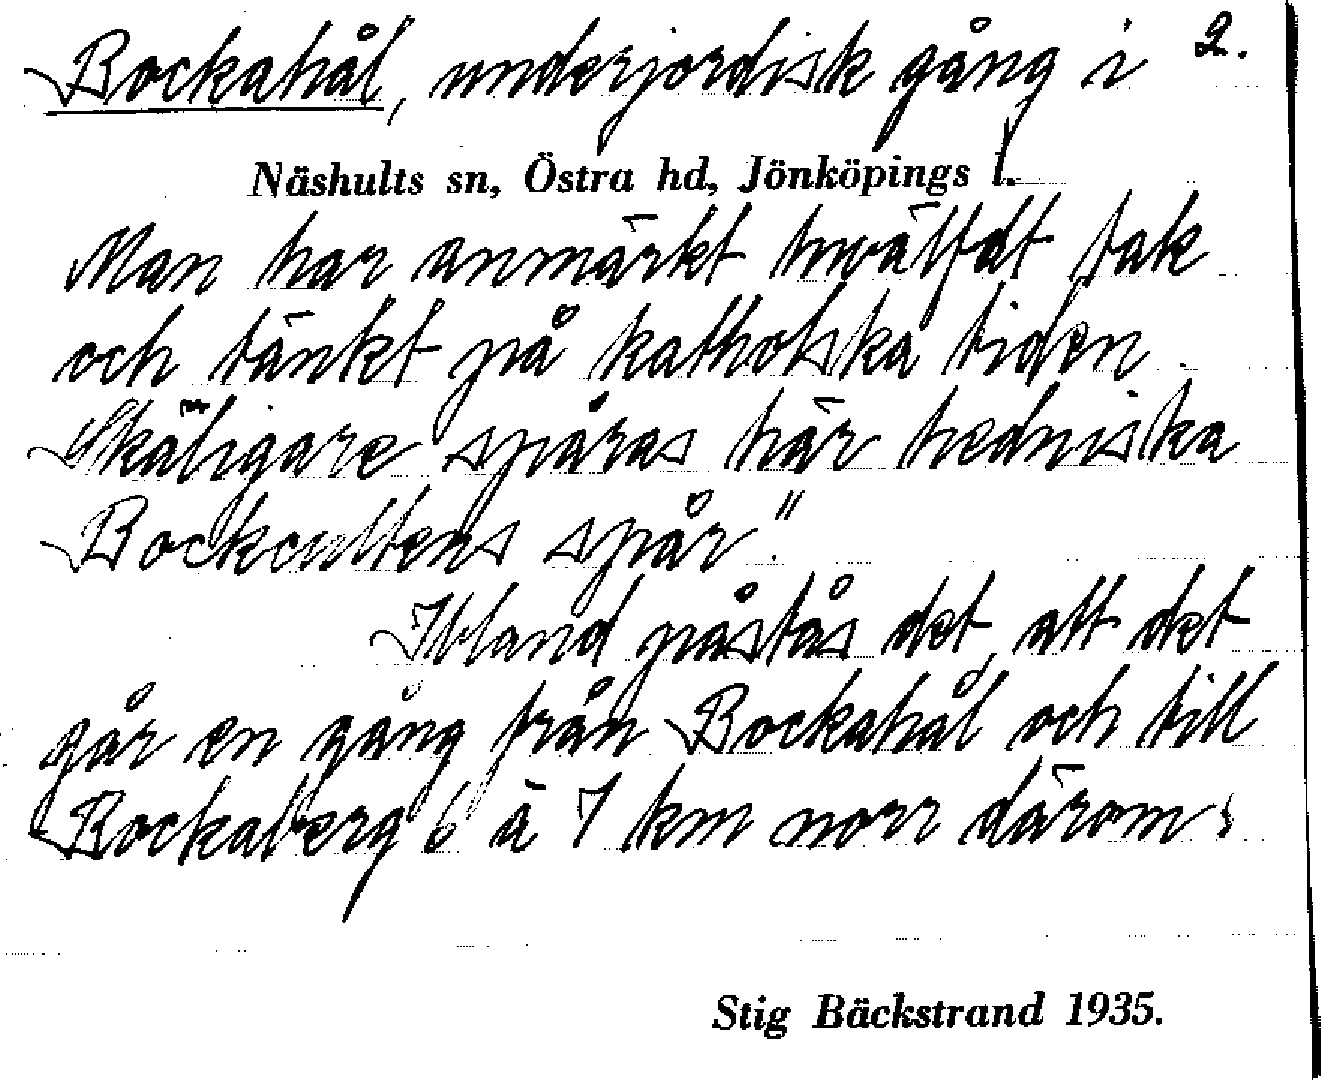 Bockahål, underjordisk gång i 2.
Näshults sn, Östra hd, Jönköpings l.
Man har anmärkt hwälfdt tak
och tänkt på katholska tiden.
Skäligare spåras här hedniska
Bockcultens spår".
Ibland påstås det, att det
går en gång från Bockahål och till
Bockaberg 6 à 7 km norr därom.
Stig Bäckstrand 1935.